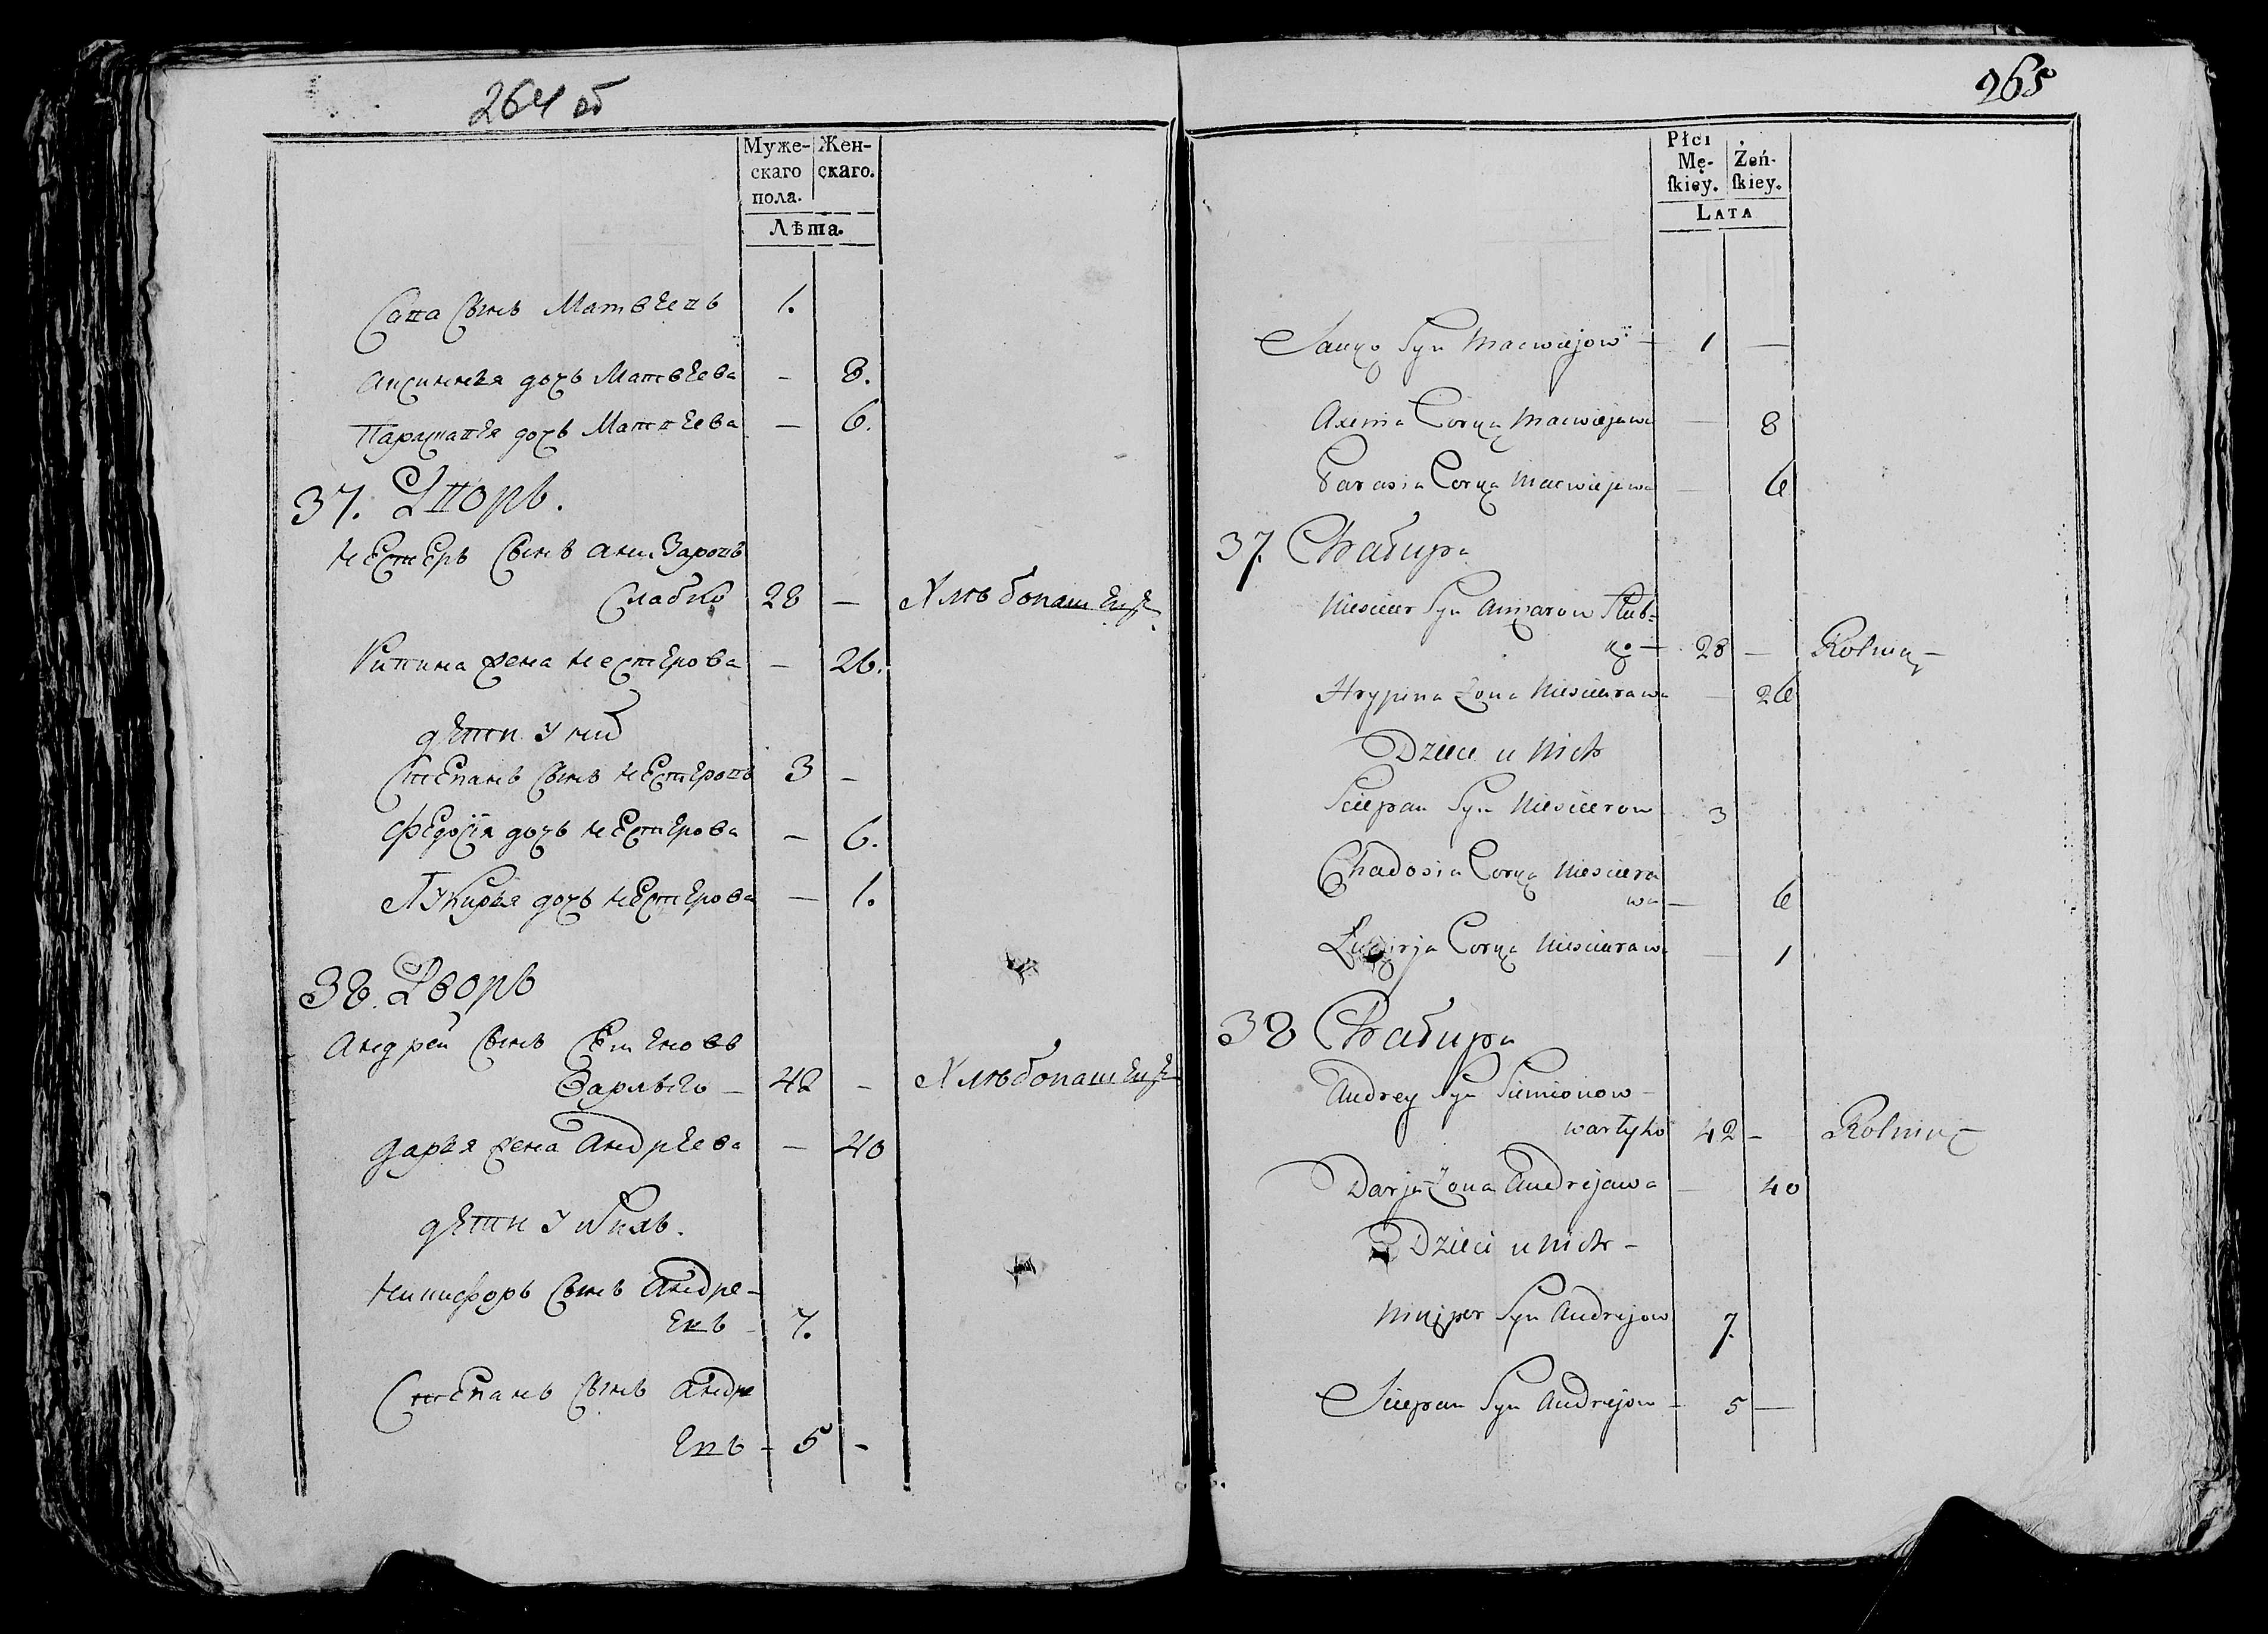 264 об
Муже- Жен-
скаго скаго.
пола.
Лѣта.
Сава Сынъ Матвеевъ 1.
Аксинья дочь Матвеева - 8.
Парасковея дочь Матвеева - 6.
37. Дворъ.
Нестеръ Сынъ Аназаровъ
Слабко 28 - Хлѣбопашецъ
Рипина жена Нестерова - 26.
дети у них
Степанъ Сынъ Нестеровъ 3 -
Федосія дочь Нестерова - 6.
Лукирья дочь Нестерова - 1.
38. Дворъ
Андрей Сынъ Семеновъ
Варлыго - 42 - Хлѣбопашецъ
Дарья жена Андреева - 40
дети у ныхъ.
Никифоръ Сынъ Андре-
евъ - 7.
Степанъ Сынъ Андре
евъ - 5 -
265
Płci
Mę- Żeń-
ſkiey. ſkiey.
LATA
Sauka Syn Macwiejow - 1 -
Axenia Corka Macwiejawa - 8
Parasia Corka Macwiejewa - 6
37. Chatupa
Niescier Syn Anizarow Słab-
ko - 28 - Rolnik -
Hrypina Żona Niescierawa - 26
Dzieci u Nich
Sciepan Syn Niescierow 3
Chadosia Corka Niesciera
wa - 6
Łukirja Corka Niescierawa - 1
38 Chatupa
Andrey Syn Siemionow -
Wartyko 42 - Rolnik -
Darja Żona Andrejawa - 40
Dzieci u Nich -
Nikiper Syn Andrejow 7.
Sciepan Syn Andrejow - 5 -